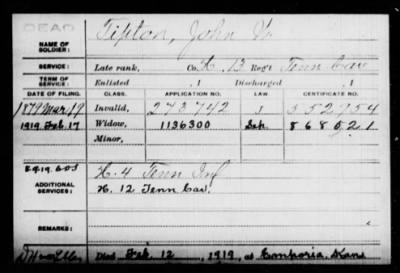 DEAD
NAME OF SOLDIER: Tipton, John W.
SERVICE: Late rank, Co. K, 13 Reg't Tenn Cav
TERM OF SERVICE: Enlisted , 1 Discharged , 1
DATE OF FILING. CLASS. APPLICATION NO. LAW. CERTIFICATE NO.
1879 Mar. 19 Invalid, 273742 J 552954
1919. Feb. 17 Widow, 1136300 868021
Minor,
ADDITIONAL SERVICES: K. 4 Tenn Inf
K. 12 Tenn Cav.
REMARKS:
Died Feb. 12, 1919, at Emporia, Kans